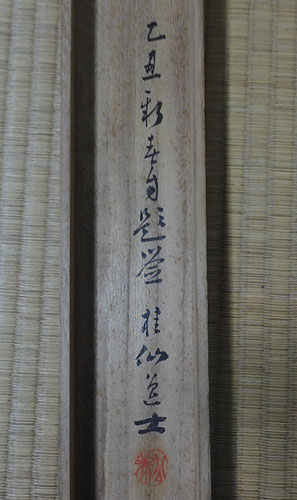 乙丑新春自題簽 桂仙道士